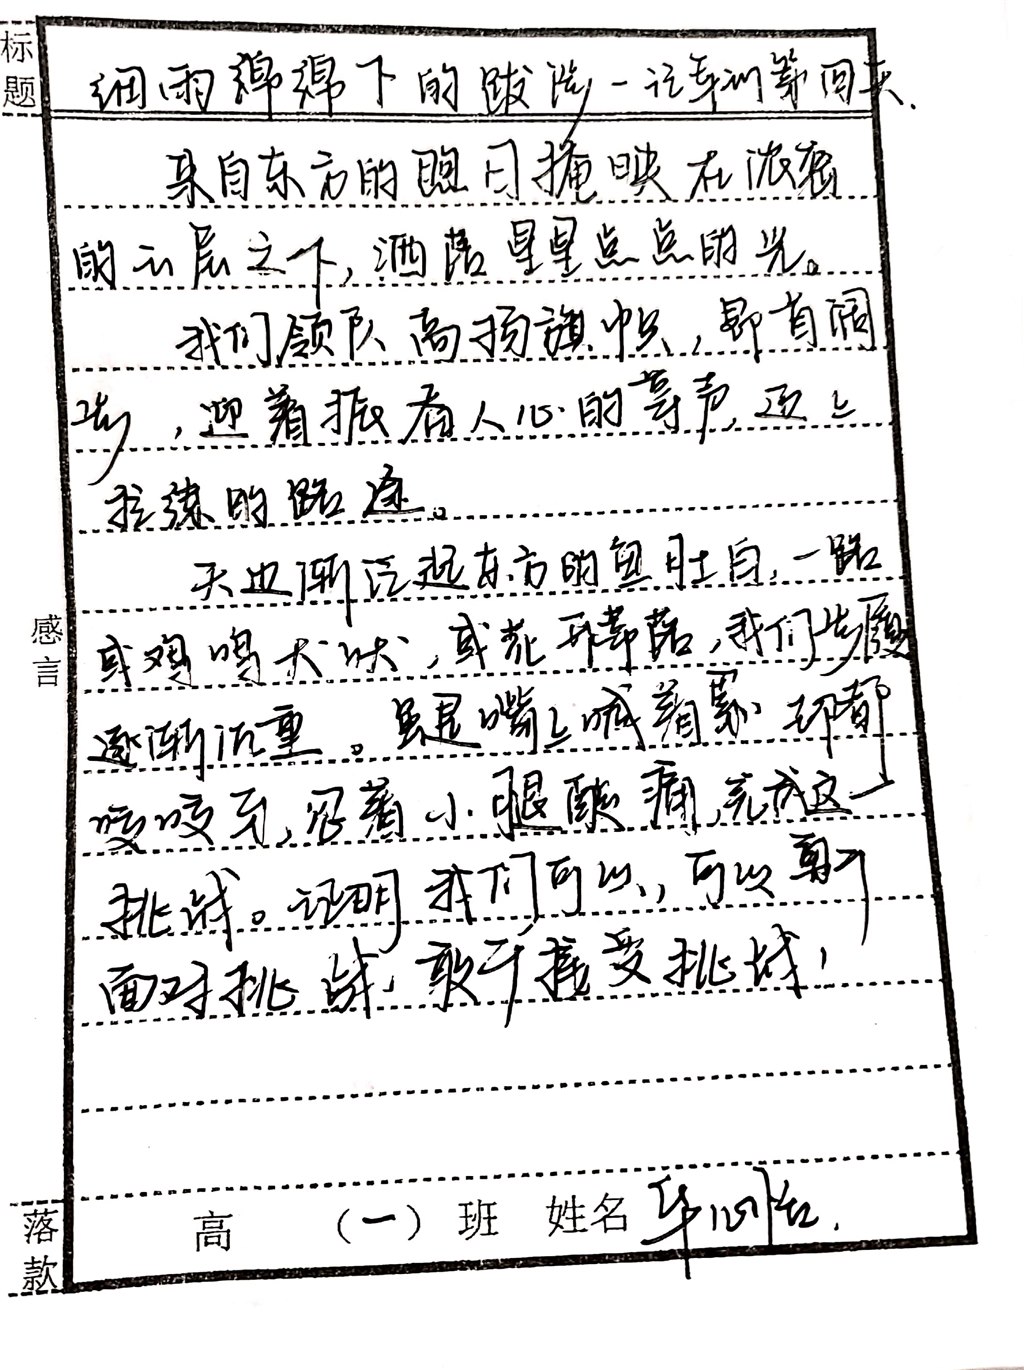 标题
细雨绵绵下的跋涉—记军训第四天.
来自东方的曜日掩映在浓密
的云层之下,洒落星星点点的光。
我们领队高扬旗帜,昂首阔
步,迎着振奋人心的哨声,迈上
拉练的路途。
天边渐泛起东方的鱼肚白,一路
或鸡鸣犬吠,或花开蒂落,我们步履
逐渐沉重。虽是嘴上喊着累,却都
咬咬牙,忍着小腿酸痛,完成这一
挑战。证明我们可以,可以勇于
面对挑战,敢于接受挑战!
感言
落款
高 (一) 班 姓名